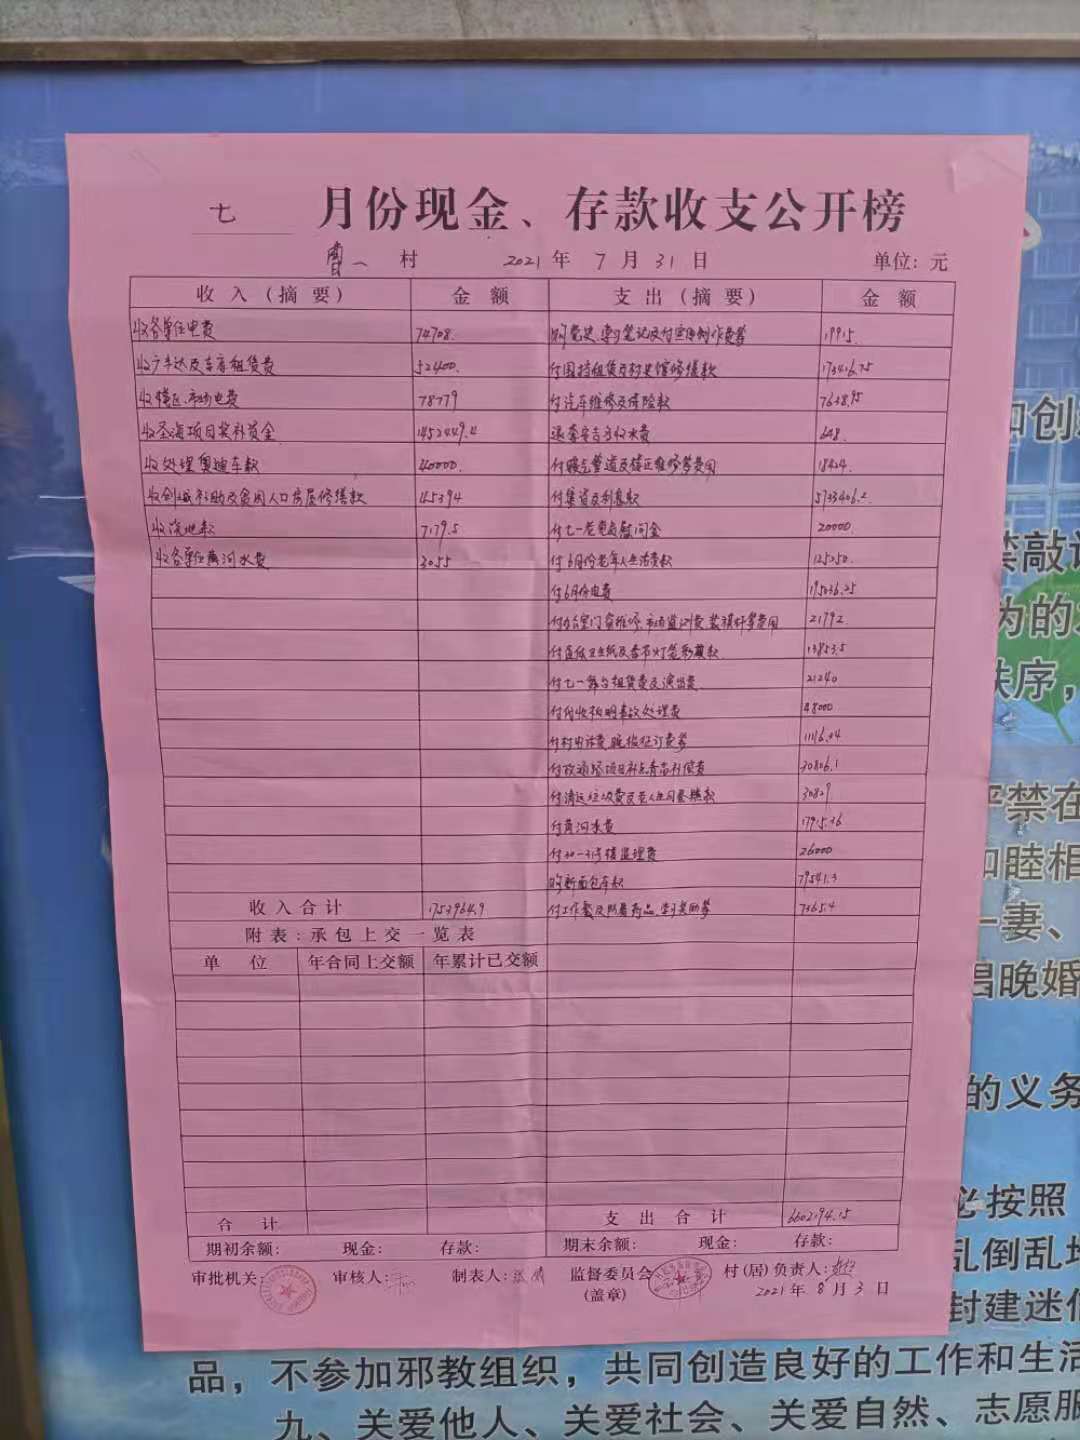 七 月份现金、存款收支公开榜
曹一 村 2021 年 7 月 31 日 单位：元
收 入（摘 要） 金 额 支 出（摘 要） 金 额
收各单位电费 74708. 购党史、学习笔记及付宣传制作费等 19915.
租赁费 52400. 付围挡租赁及村史馆修缮款 173416.75
收楼区、市场电费 78779 付汽车维修及保险款 7638.95
收圣海项目奖补资金 1452449.4 水费 608.
收处理奥迪车款 40000. 付暖气管道及楼区维修等费用 18424.
收创城补助及贫困人口房屋修缮款 45394 付集资及利息款 5733406.2
收浇地款 7179.5 付七一老党员慰问金 20000.
收各单位黄河水费 3055 付6月份老年人生活费款 125250.
付6月份电费 195036.25
付办公室门窗维修、市场监测费、装旗杆等费用 21792.
灯笼彩旗款. 13853.5
付七一舞台租赁费及演出费 21240
事故处理费 48000
付村电话费、晚报征订费等 11116.04
青苗补偿费 30806.1
付清运垃圾费及 30829.
付黄河水费 17915.36
付30-31号楼监理费 26000
购新面包车款 79541.3
收 入 合 计 1753964.9 付工作餐及防暑药品、学习奖励等 7365.4
附 表：承 包 上 交 一 览 表
单 位 年合同上交额 年累计已交额
合 计 支 出 合 计 6602194.15
期初余额： 现金： 存款： 期末余额： 现金： 存款：
审批机关： 审核人： 制表人： 监督委员会 村(居)负责人：
(盖章) 2021年 8 月 3 日
和创
禁敲诈
为的
秩序，
严禁在
和睦相
一妻、
昌晚婚
的义务
必按照
乱倒乱
封建迷信
品，不参加邪教组织，共同创造良好的工作和生活
九、关爱他人、关爱社会、关爱自然、志愿服